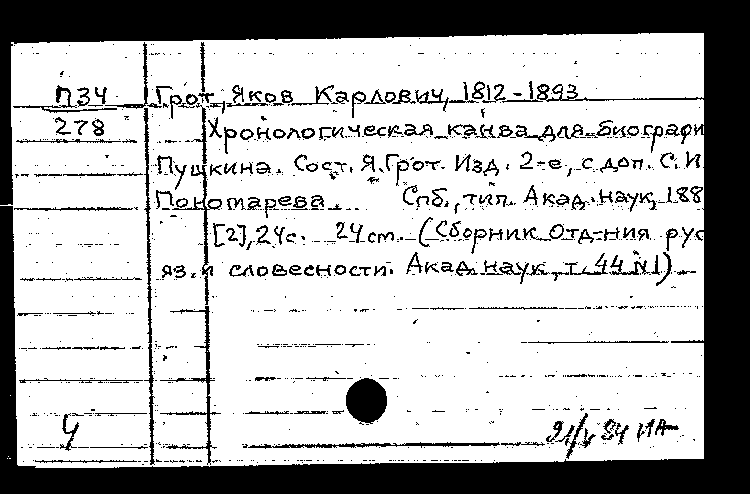 П34 Грот, Яков Карлович, 1812-1893
278 Хронологическая канва для биографи
Пушкина. Сост. Я.Грот. Изд. 2-е, с доп. С.И.
Пономарева. Спб., тип. Акад. наук, 188
[2], 24с. 24cm. (Сборник Отд-ния рус
яз. и словесности. Акад. наук, т. 44 №1)
4 21/V 84